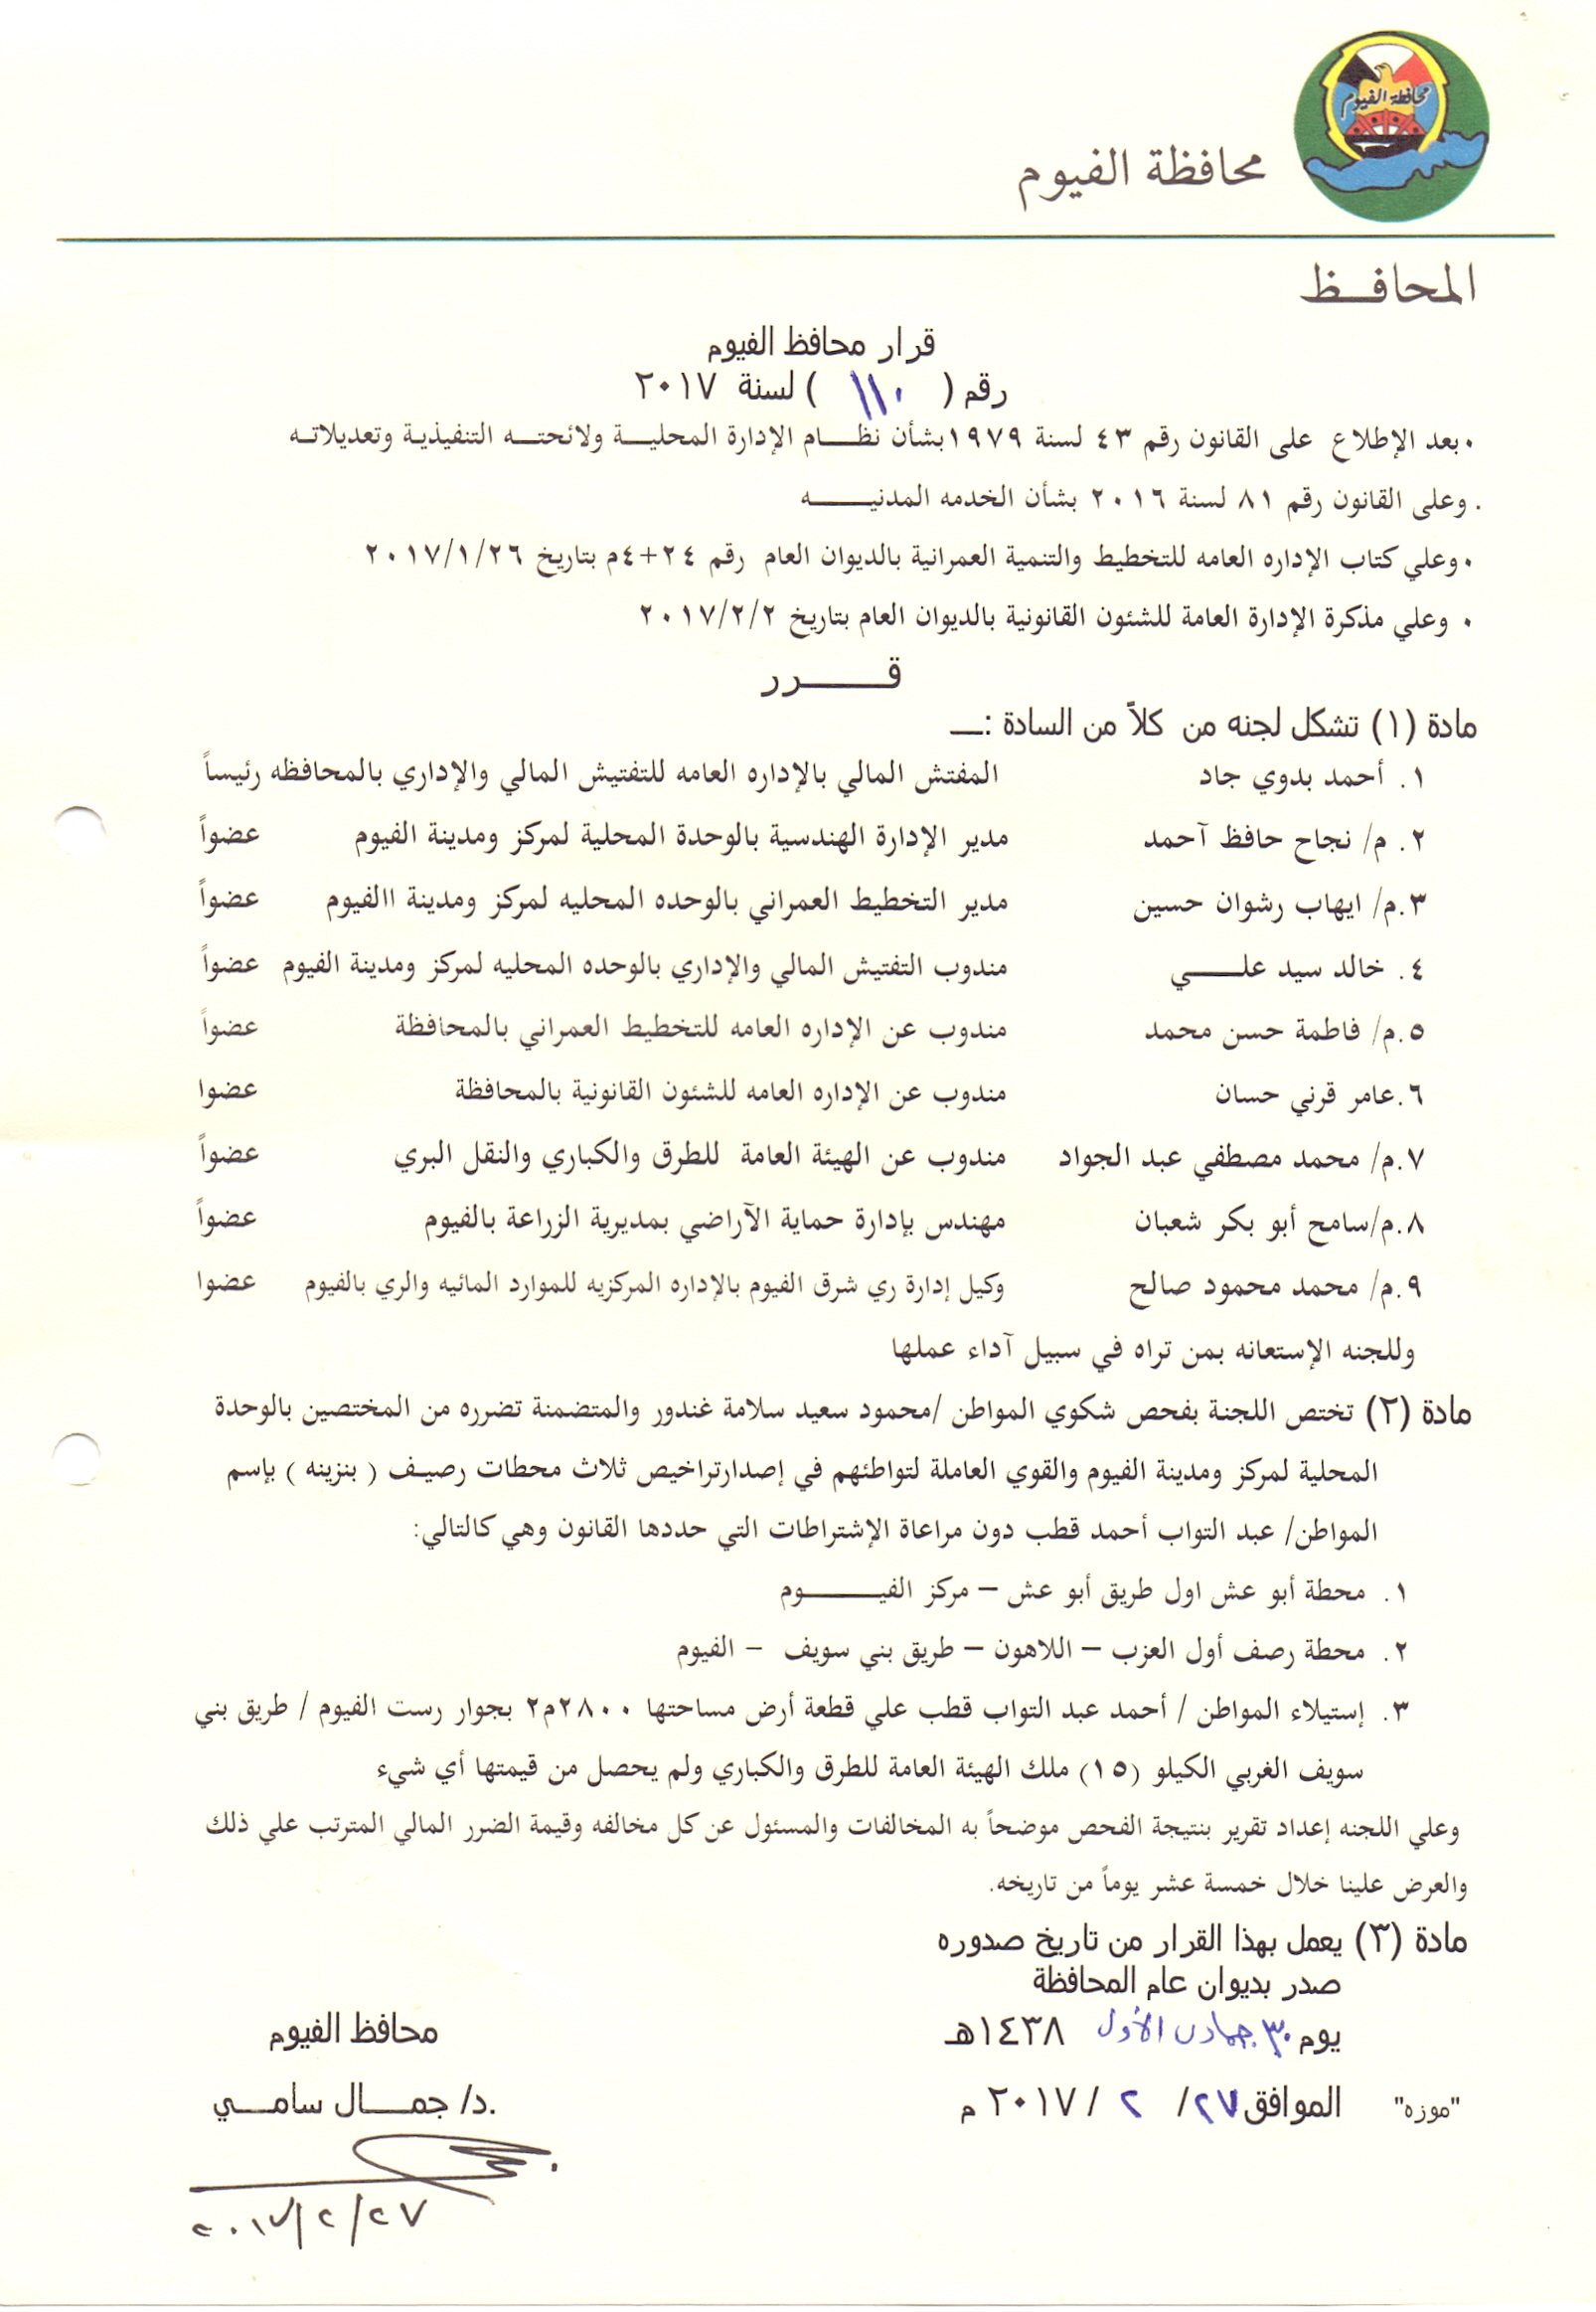 محافظة الفيوم
محافظة الفيوم
المحافـــظ
قرار محافظ الفيوم
رقم ( ١١٠ ) لسنة ٢٠١٧
٠ بعد الإطلاع على القانون رقم ٤٣ لسنة ١٩٧٩بشأن نظـــام الإدارة المحليـــة ولائحتـــه التنفيذيـة وتعديلاتـه
. وعلى القانون رقم ٨١ لسنة ٢٠١٦ بشأن الخدمه المدنيـــــه
٠ وعلي كتاب الإداره العامه للتخطيط والتنمية العمرانية بالديوان العام رقم ٢٤+٤م بتاريخ ٢٠١٧/١/٢٦
٠ وعلي مذكرة الإدارة العامة للشئون القانونية بالديوان العام بتاريخ ٢٠١٧/٢/٢
قـــــرر
مادة (١) تشكل لجنه من كلاً من السادة :ــ
١. أحمد بدوي جاد المفتش المالي بالإداره العامه للتفتيش المالي والإداري بالمحافظه رئيساً
٢. م/ نجاح حافظ آحمد مدير الإدارة الهندسية بالوحدة المحلية لمركز ومدينة الفيوم عضواً
٣.م/ ايهاب رشوان حسين مدير التخطيط العمراني بالوحده المحليه لمركز ومدينة االفيوم عضواً
٤. خالد سيد علـــــي مندوب التفتيش المالي والإداري بالوحده المحليه لمركز ومدينة الفيوم عضواً
٥.م/ فاطمة حسن محمد مندوب عن الإداره العامه للتخطيط العمراني بالمحافظة عضواً
٦.عامر قرني حسان مندوب عن الإداره العامه للشئون القانونية بالمحافظة عضوا
٧.م/ محمد مصطفي عبد الجواد مندوب عن الهيئة العامة للطرق والكباري والنقل البري عضواً
٨.م/سامح أبو بكر شعبان مهندس بإدارة حماية الآراضي بمديرية الزراعة بالفيوم عضواً
٩.م/ محمد محمود صالح وكيل إدارة ري شرق الفيوم بالإداره المركزيه للموارد المائيه والري بالفيوم عضوا
وللجنه الإستعانه بمن تراه في سبيل آداء عملها
مادة (٢) تختص اللجنة بفحص شكوي المواطن /محمود سعيد سلامة غندور والمتضمنة تضرره من المختصين بالوحدة
المحلية لمركز ومدينة الفيوم والقوي العاملة لتواطئهم في إصدارتراخيص ثلاث محطات رصيـف ( بنزينه ) بإسم
المواطن/ عبد التواب أحمد قطب دون مراعاة الإشتراطات التي حددها القانون وهي كالتالي:
١. محطة أبو عش اول طريق أبو عش – مركز الفيــــــوم
٢. محطة رصف أول العزب – اللاهون – طريق بني سويف – الفيوم
٣. إستيلاء المواطن / أحمد عبد التواب قطب علي قطعة أرض مساحتها ٢٨٠٠م٢ بجوار رست الفيوم / طريق بني
سويف الغربي الكيلو (١٥) ملك الهيئة العامة للطرق والكباري ولم يحصل من قيمتها أي شيء
وعلي اللجنه إعداد تقرير بنتيجة الفحص موضحاً به المخالفات والمسئول عن كل مخالفه وقيمة الضرر المالي المترتب علي ذلك
والعرض علينا خلال خمسة عشر يوماً من تاريخه.
مادة (٣) يعمل بهذا القرار من تاريخ صدوره
صدر بديوان عام المحافظة
يوم ٣٠ جمادى الأول ١٤٣٨هـ
الموافق ٢٧/ ٢ / ٢٠١٧ م
"موزه"
محافظ الفيوم
.د/ جمــــال سامــــي
٢٠١٧/٢/٢٧